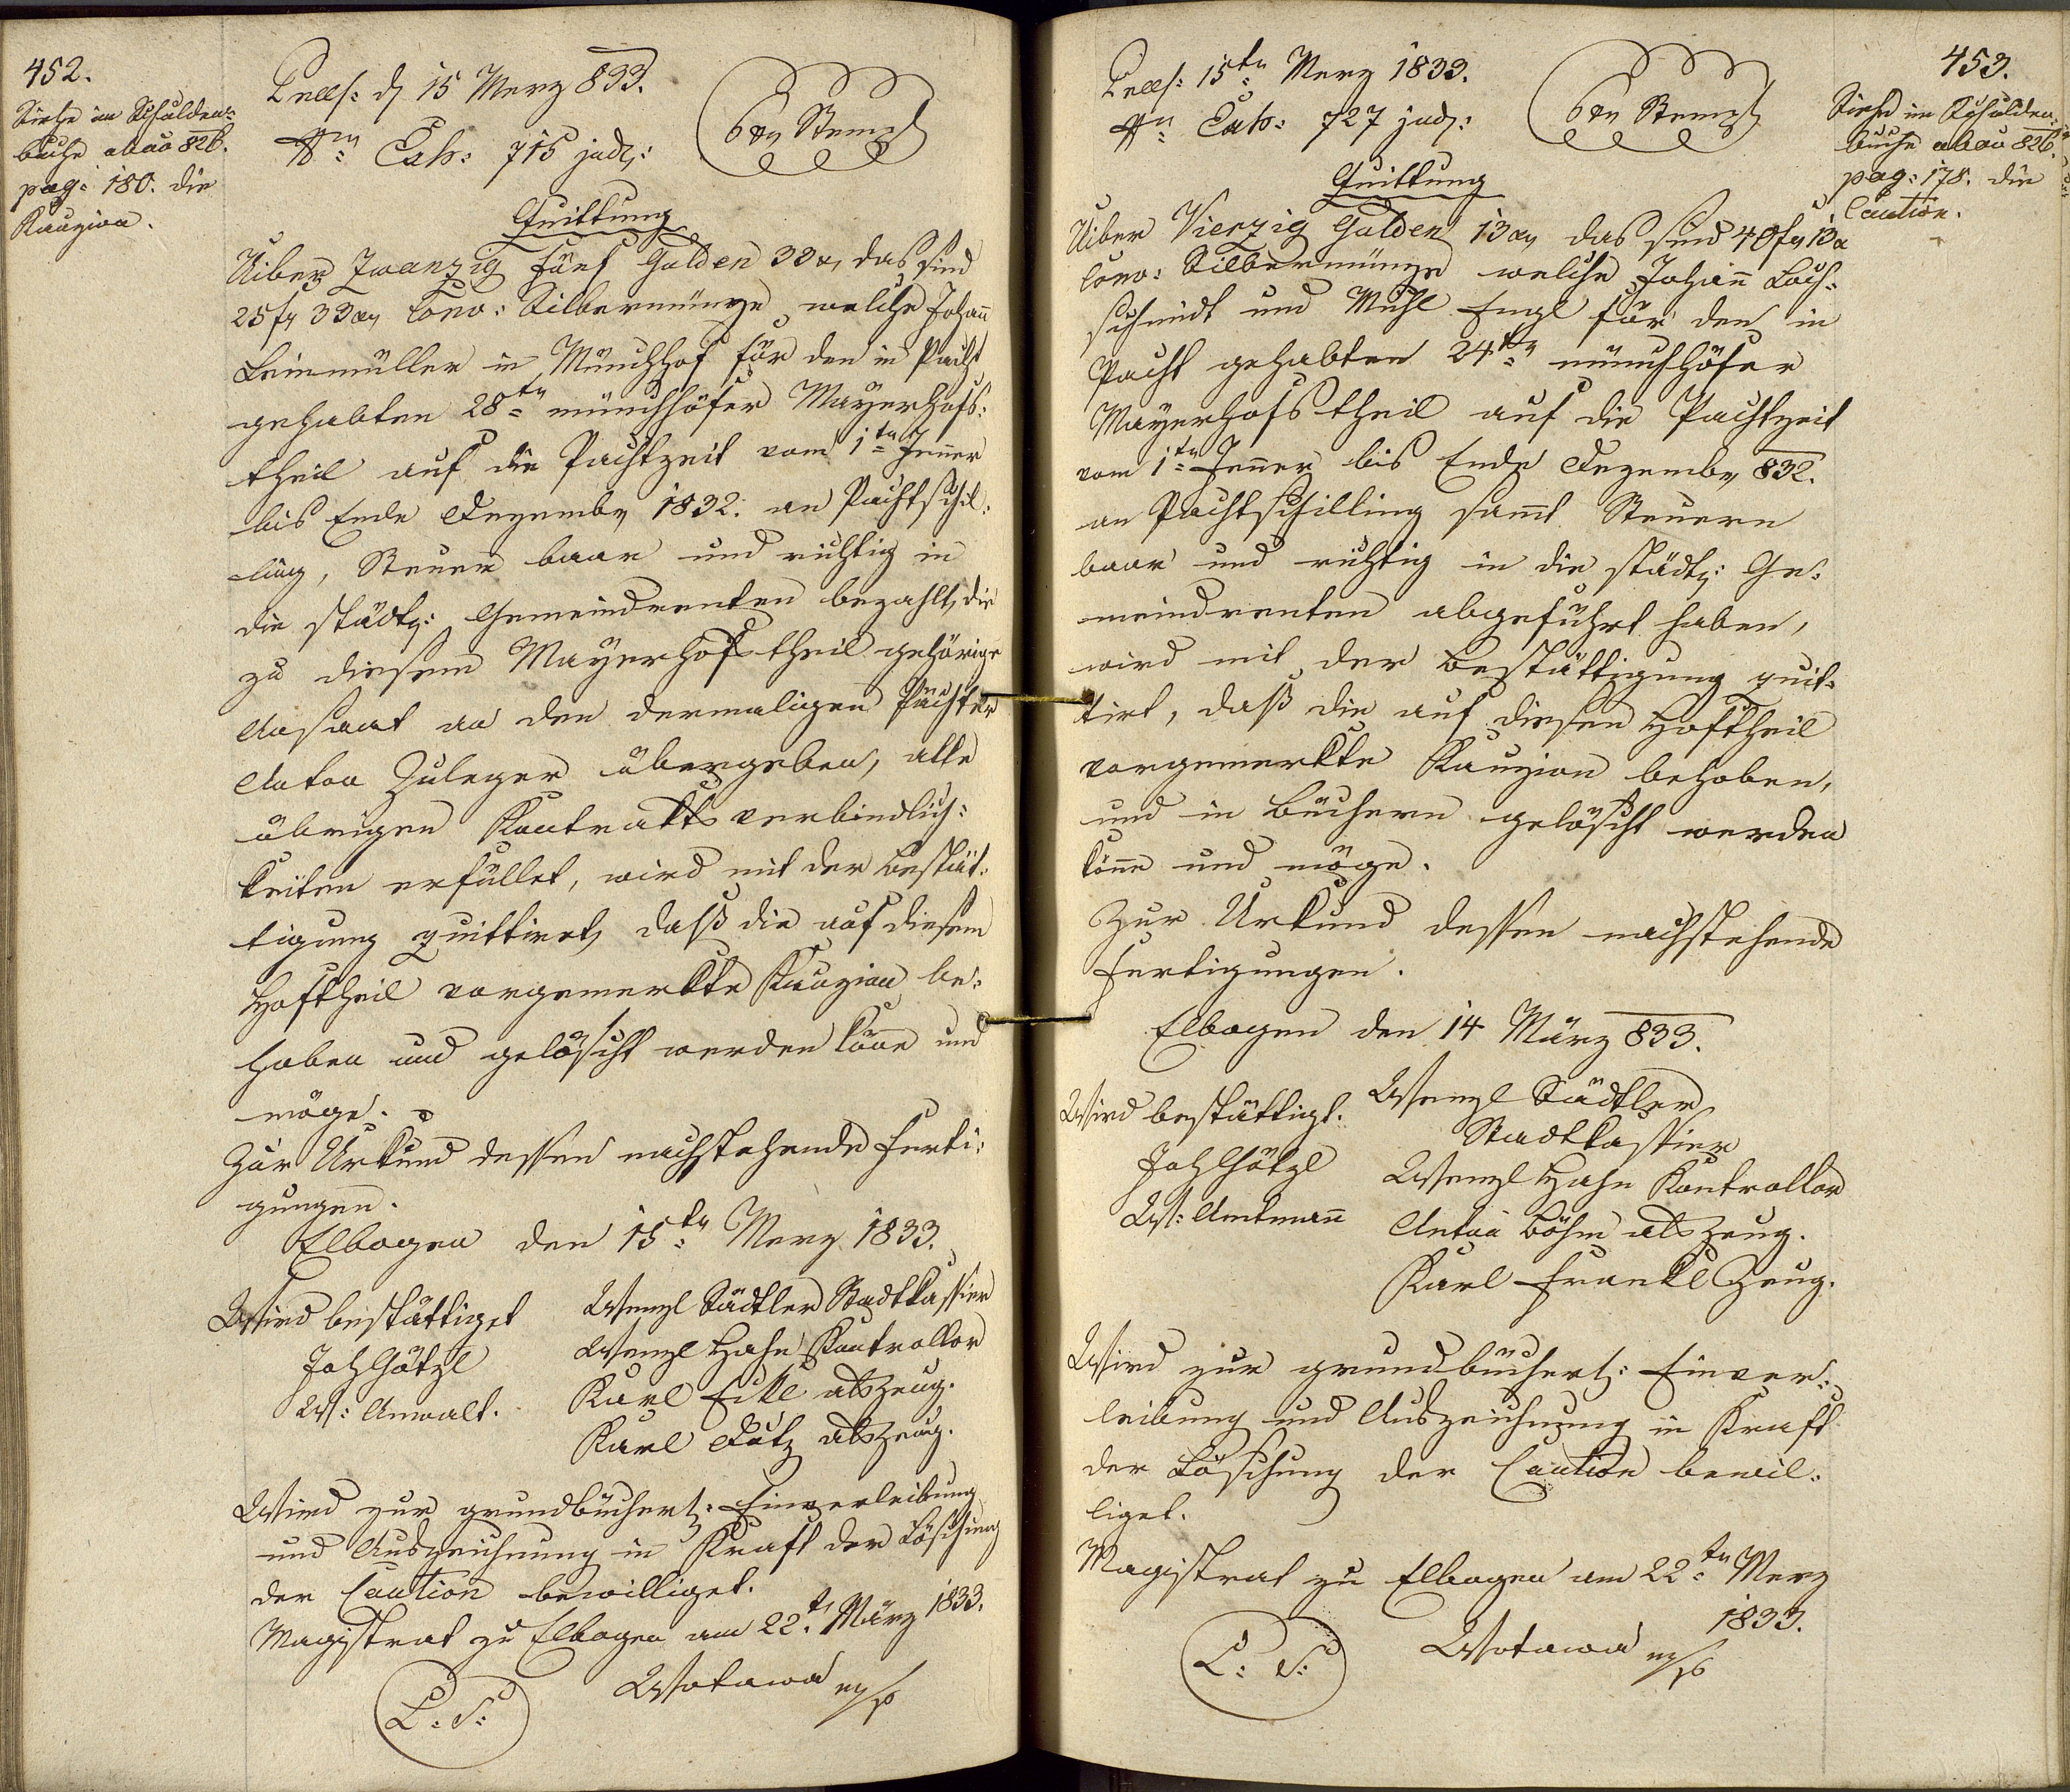 452.
Siehe im Schulden-
buche abao 826.
pag: 180. die
Kauzion.
Praes: d 15 Merz 833.
Nro Exh: 715 judl:
6 xr Stempl
Quittung
Uiber Zwanzig fünf Gulden 33 xr, das sind
25 fr 33 xr Conv: Silbermünze, welche Johann
Leinmüller in Münchhof für den in Pacht
gehabten 28ten münchhöfer Mayerhofs-
theil auf die Pachtzeit vom 1ten Jenner
bis Ende Dezember 1832. an Pachtschil-
ling, Steuern baar und richtig in
die städt: Gemeindrenten bezahlt, die
zu diesem Mayerhofstheil gehörige
Ansaat an den dermaligen Pächter
Anton Zuleger übergeben, alle
übrigen Kontraktsverbindlich-
keiten erfüllet, wird mit der Bestät-
tigung quittiret, daß die auf diesem
Hoftheil vorgemerkte Kauzion be-
hoben und gelöscht werden könne und
möge.
Zur Urkund dessen nachstehende Ferti-
gungen.
Elbogen den 15ten Merz 1833.
Wird bestättiget
Joh Götzl
W: Anwalt.
Wenzl Städtler Stadtkassier
Wenzl Hahn Kontrollor
Karl Eckl als Zeug.
Karl Dutz als Zeug.
Wird zur grundbücherl: Einverleibung
und Auszeichnung in Kraft der Löschung
der Caution bewilliget.
Magistrat zu Elbogen am 22t. März 1833.
L: S:
Wotawa m/p
453.
Siehe im Schulden-
buche abao 826.
pag: 178. die
Caution.
Praes: 15ten Merz 1833.
Nro Exh: 727 jud:
6 xr Stempl
Quittung
Uiber Vierzig Gulden 13 xr das sind 40 fr 13 x
Conv: Silbermünze welche Johann Loch-
schmidt und Michl Engl für den in
Pacht gehabten 24ten münchhöfer
Mayerhofstheil auf die Pachtzeit
vom 1ten Jenner bis Ende Dezember 832.
an Pachtschilling sammt Steuern
baar und richtig in die städt: Ge-
meindrenten abgeführt haben,
wird mit der Bestättigung quit-
tirt, daß die auf diesen Hoftheil
vorgemerkte Kauzion behoben,
und in Büchern gelöscht werden
könne und möge.
Zur Urkund dessen nachstehende
Fertigungen.
Elbogen den 14 März 833.
Wird bestättigt.
Joh Götzl
W: Amtmann
Wenzl Städtler
Stadtkassier
Wenzl Hahn Kontrollor
Anton Böhm als Zeug.
Karl Frankl Zeug.
Wird zur grundbücherl: Einver-
leibung und Auszeichnung in Kraft
der Löschung der Caution bewil-
liget.
Magistrat zu Elbogen am 22ten Merz
1833.
L: S:
Wotawa m/p